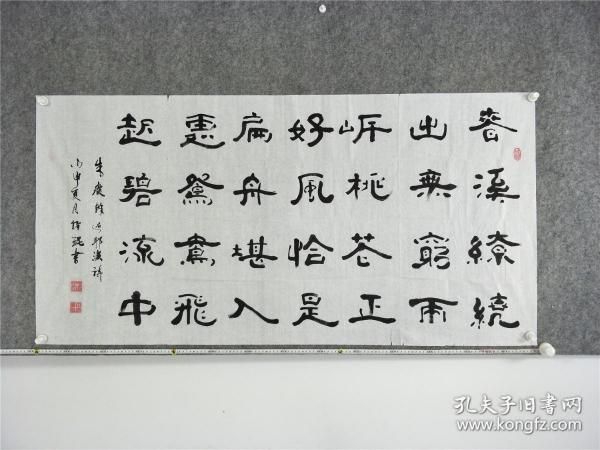 春溪繚繞
出無窮兩
岸桃花正
好風恰是
扁舟堪入
畫鴛鴦飛
起碧流中
朱慶餘過耶溪詩
丙申夏月 書
孔夫子旧书网
www.kongfz.com